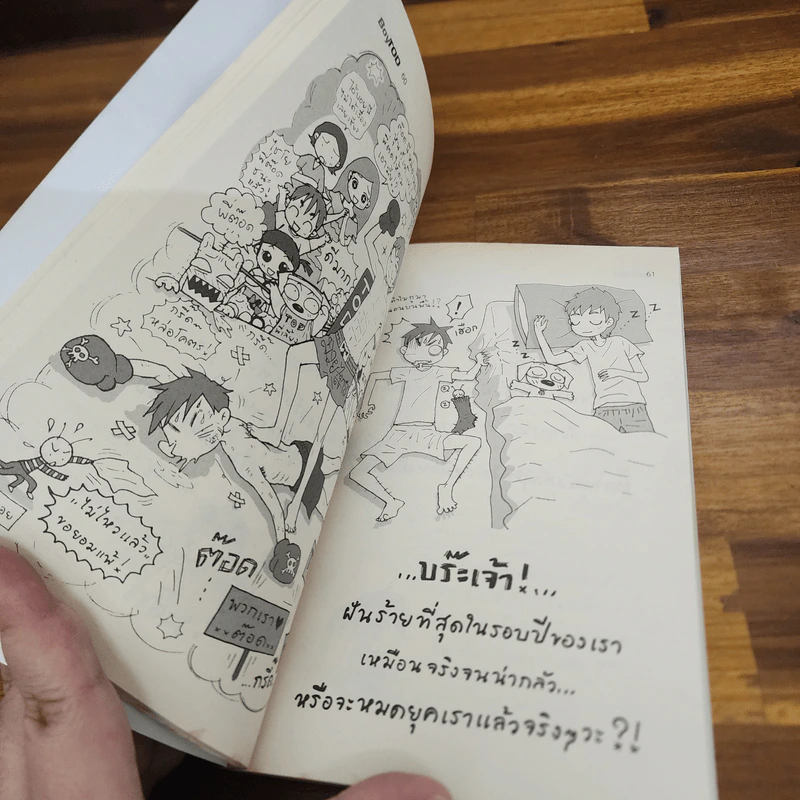 BoyTOD
60
พี่ต๊อด
ดีมาก
กรี๊ด
หล่อโคตรๆ
กรี๊ด..
TOD
..ไม่ไหวแล้ว..
ขอยอมแพ้!
ต๊อด
พวกเรา♥
ต๊อด..
61
!
เฮือก
z z z
z z
...บร๊ะเจ้า!...
ฝันร้ายที่สุดในรอบปีของเรา
เหมือนจริงจนน่ากลัว...
หรือจะหมดยุคเราแล้วจริงๆวะ?!